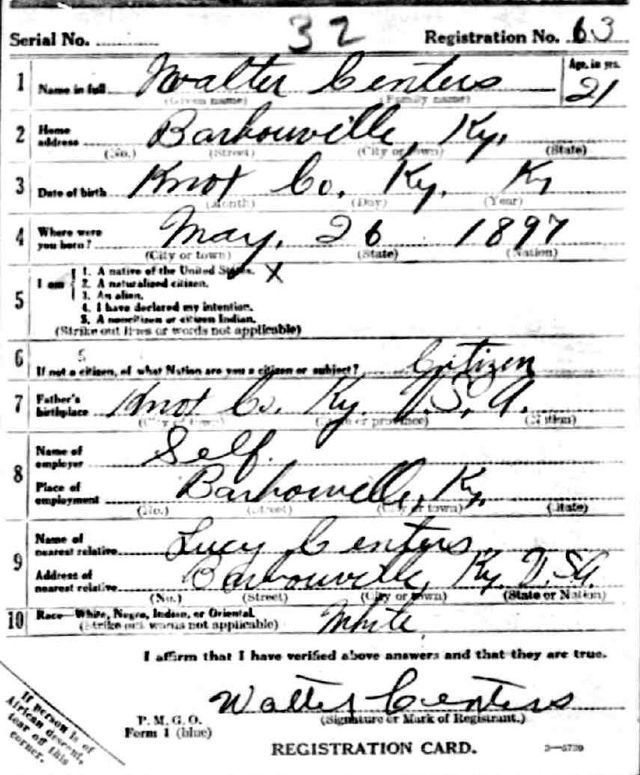 Serial No. 32 Registration No. 63
1 Name in full Walter Centers Age, in yrs. 21
(Given name) (Family name)
2 Home address Barbourville, Ky.
(No.) (Street) (City or town) (State)
3 Date of birth Knox Co. Ky. Ky
(Month) (Day) (Year)
4 Where were you born? May, 26 1897
(City or town) (State) (Nation)
5 I am
1. A native of the United States. X
2. A naturalized citizen.
3. An alien.
4. I have declared my intention.
5. A noncitizen or citizen Indian.
(Strike out lines or words not applicable)
6 If not a citizen, of what Nation are you a citizen or subject? Citizen
7 Father's birthplace Knox Co. Ky. U.S.A.
(City or town) (State or province) (Nation)
8 Name of employer Self.
Place of employment Barbourville, Ky.
(No.) (Street) (City or town) (State)
9 Name of nearest relative Lucy Centers
Address of nearest relative Barbourville, Ky. U.S.A.
(No.) (Street) (City or town) (State or Nation)
10 Race—White, Negro, Indian, or Oriental. White.
(Strike out words not applicable)
I affirm that I have verified above answers and that they are true.
Walter Centers
(Signature or Mark of Registrant.)
P. M. G. O.
Form 1 (blue)
REGISTRATION CARD.
If person is of
African descent,
tear off this
corner.